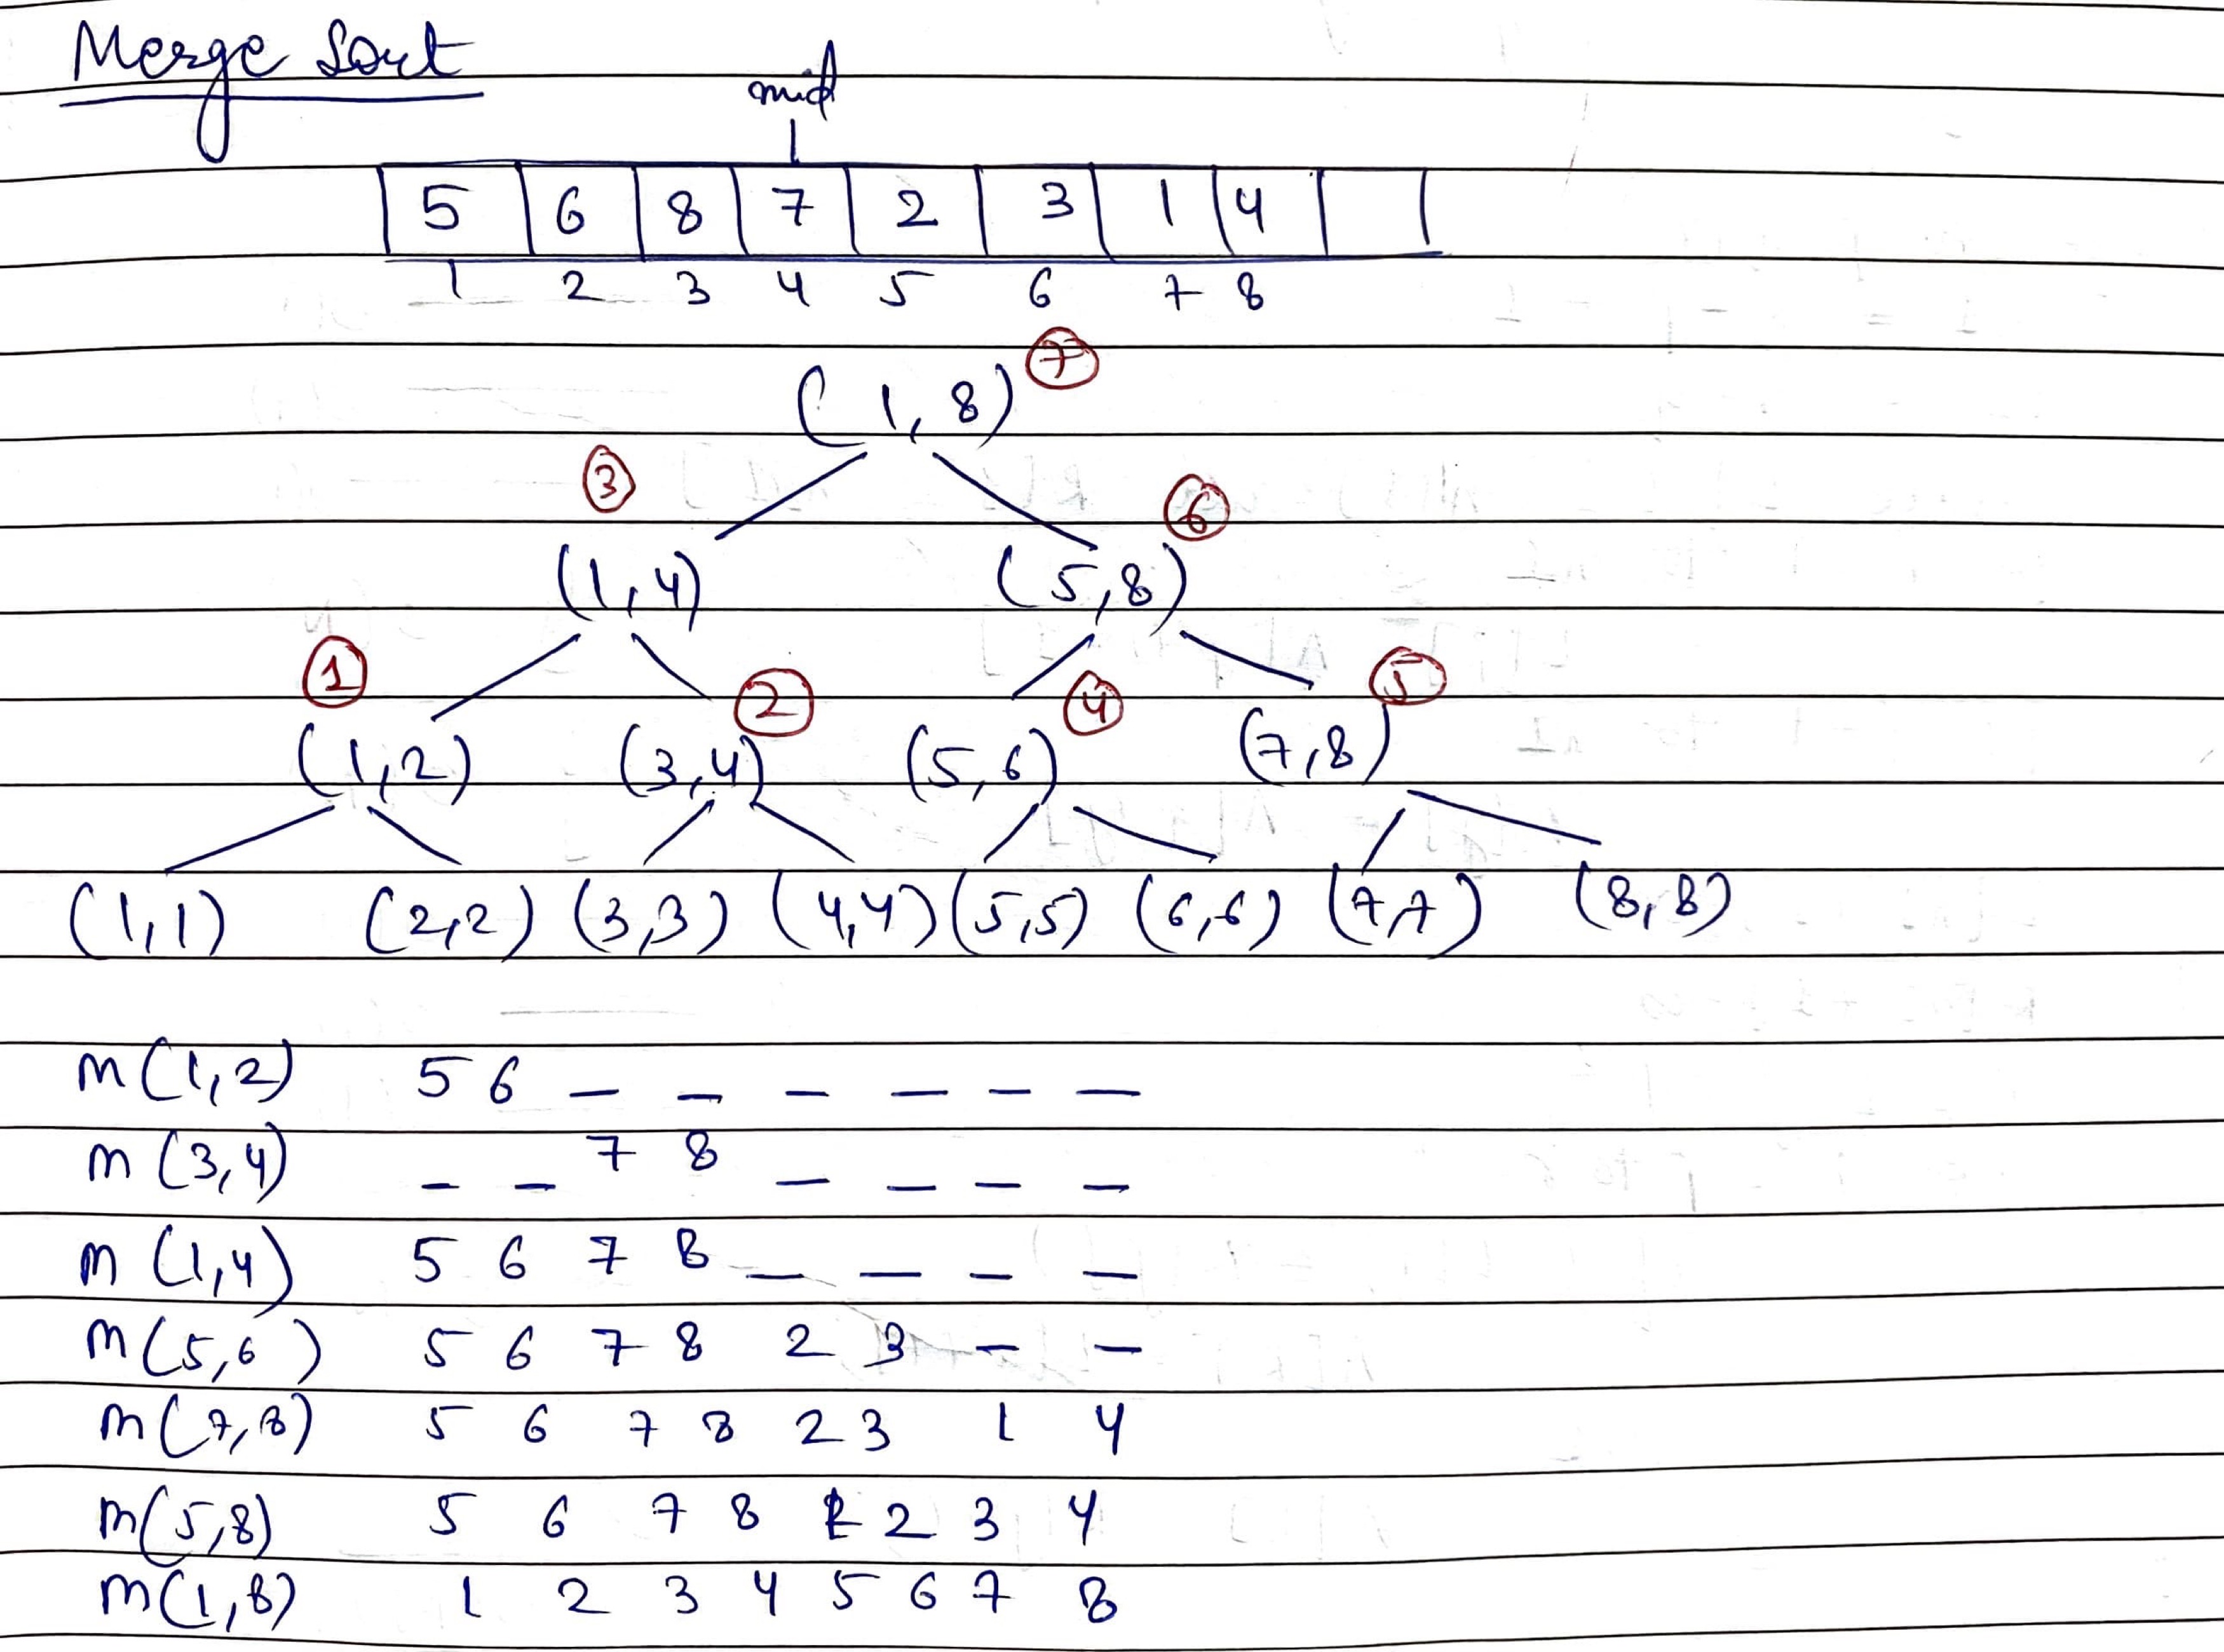 Merge Sort
mid
5 6 8 7 2 3 1 4
1 2 3 4 5 6 7 8
(1,8) 7
3 6
(1,4) (5,8)
1 2 4 5
(1,2) (3,4) (5,6) (7,8)
(1,1) (2,2) (3,3) (4,4) (5,5) (6,6) (7,7) (8,8)
m(1,2) 5 6 _ _ _ _ _ _
m(3,4) _ _ 7 8 _ _ _ _
m(1,4) 5 6 7 8 _ _ _ _
m(5,6) 5 6 7 8 2 3 _ _
m(7,8) 5 6 7 8 2 3 1 4
m(5,8) 5 6 7 8 1 2 3 4
m(1,8) 1 2 3 4 5 6 7 8